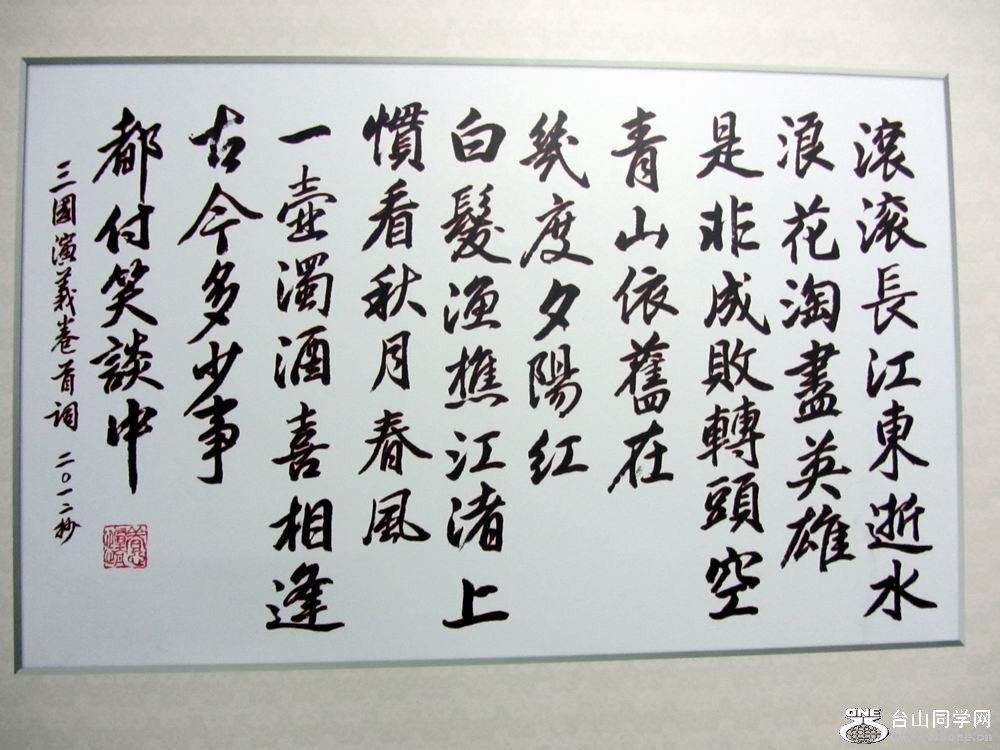 滾滾長江東逝水
浪花淘盡英雄
是非成敗轉頭空
青山依舊在
幾度夕陽紅
白髮渔樵江渚上
慣看秋月春風
一壺濁酒喜相逢
古今多少事
都付笑談中
三國演義卷首词 二〇一二秒
ONE
台山同学网